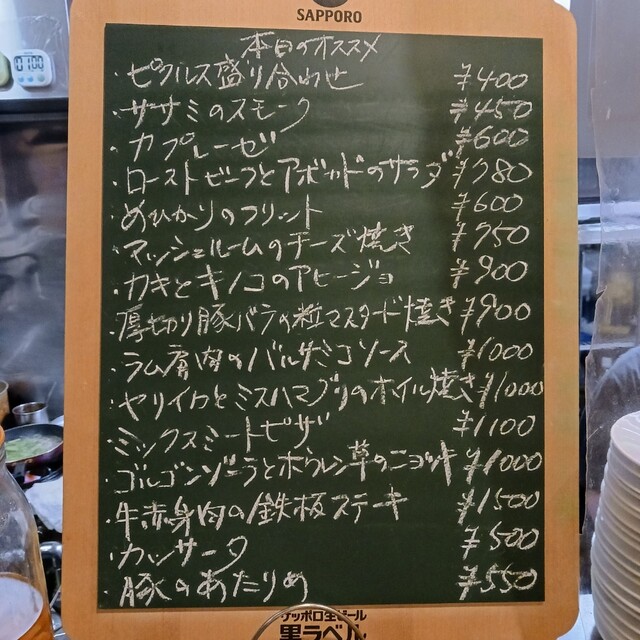 SAPPORO
本日のオススメ
・ピクルス盛り合わせ ¥400
・ササミのスモーク ¥450
・カプレーゼ ¥600
・ローストビーフとアボカドのサラダ ¥780
・めひかりのフリット ¥600
・マッシュルームのチーズ焼き ¥750
・カキとキノコのアヒージョ ¥900
・厚切り豚バラの粒マスタード焼き ¥900
・ラム肩肉のバルサミコソース ¥1000
・ヤリイカとミスハマグリのホイル焼き ¥1000
・ミックスミートピザ ¥1100
・ゴルゴンゾーラとホウレン草のニョッキ ¥1000
・牛赤身肉の鉄板ステーキ ¥1500
・カッサータ ¥500
・豚のあたりめ ¥550
サッポロ生ビール
黒ラベル